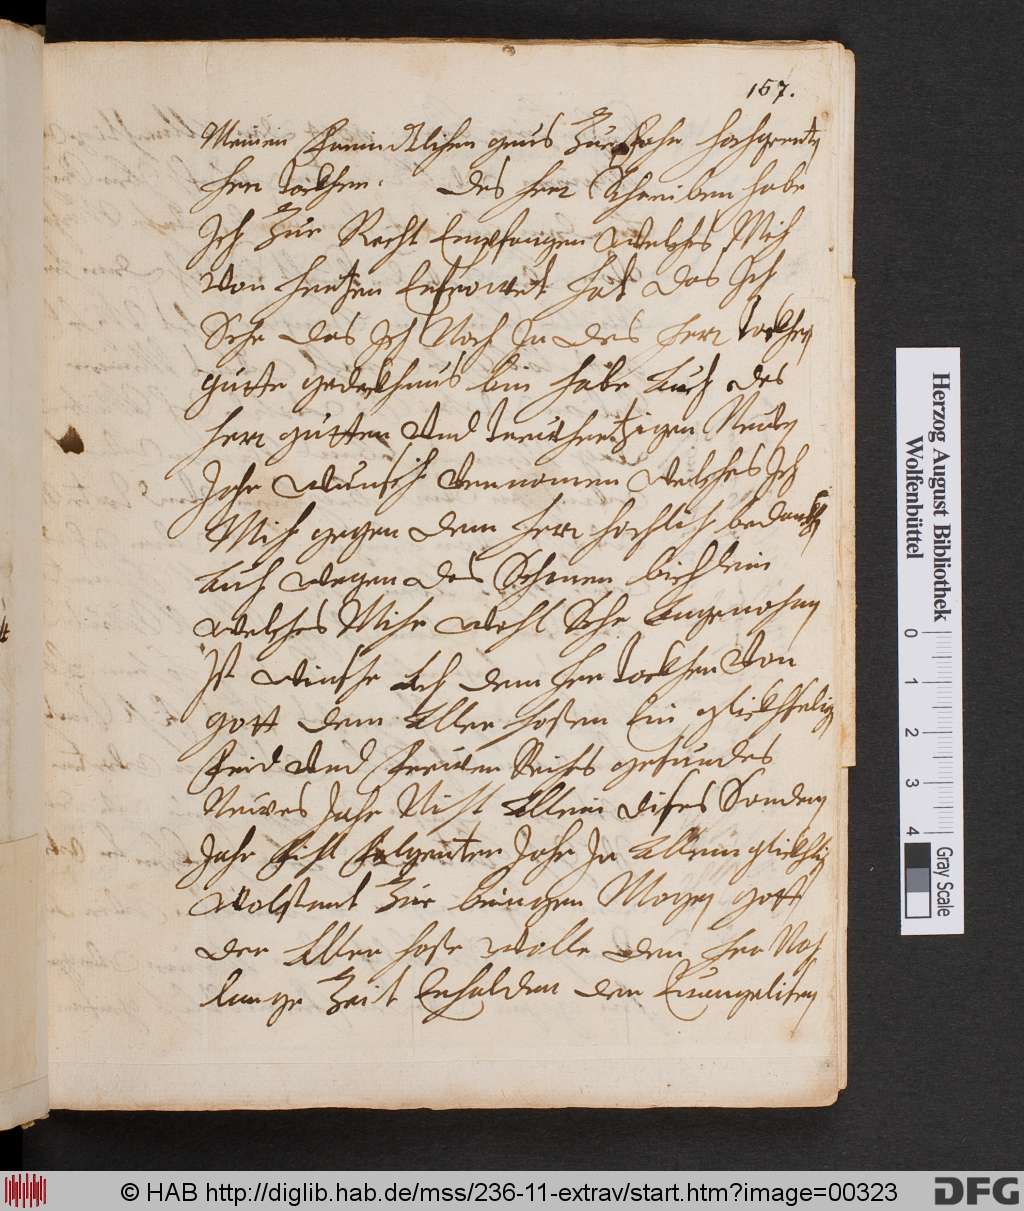 157.
Meinen freindtlichen grus Zuefohr hochgeerter
Herr Dockhter. des herr schreiben habe
Ich Zue Recht Empfangen welches Mich
Von hertzen Erfrowet hat das Ich
Sehe das Ich Noch In des herr Dockhter
gutte gedeckhnus bin habe auch des
herr gutten Vnd treuwhertzigen Neuwen
Jahr wunsch vernomen welches Ich
Mich gegen dem herr hochlich bedanckhe
auch wegen des Schenen biechlein
welches Mihr wohl Sehr angenohmen
Ist winsche ich dem her Dockhter Von
gott dem aller hosten Ein glickhseliges
Frid Vnd freiden Reichs gesundes
Neuwes Jahr Nicht allein dises Sonderen
Jahr Folgenten Jahr In allem glickhlichen
wolstant Zue bringen Mogen gott
der aller hoste wolle den her Noch
lange Zeit Erhalden der Euangelischen
Herzog August Bibliothek
Wolfenbüttel
0 1 2 3 4
Gray Scale
© HAB http://diglib.hab.de/mss/236-11-extrav/start.htm?image=00323
DFG